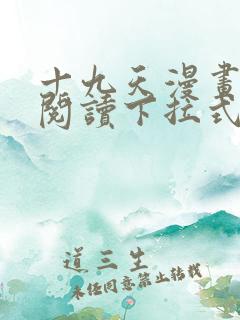 十九天漫畫
閱讀下拉式
道三生
未任同意禁止轉載